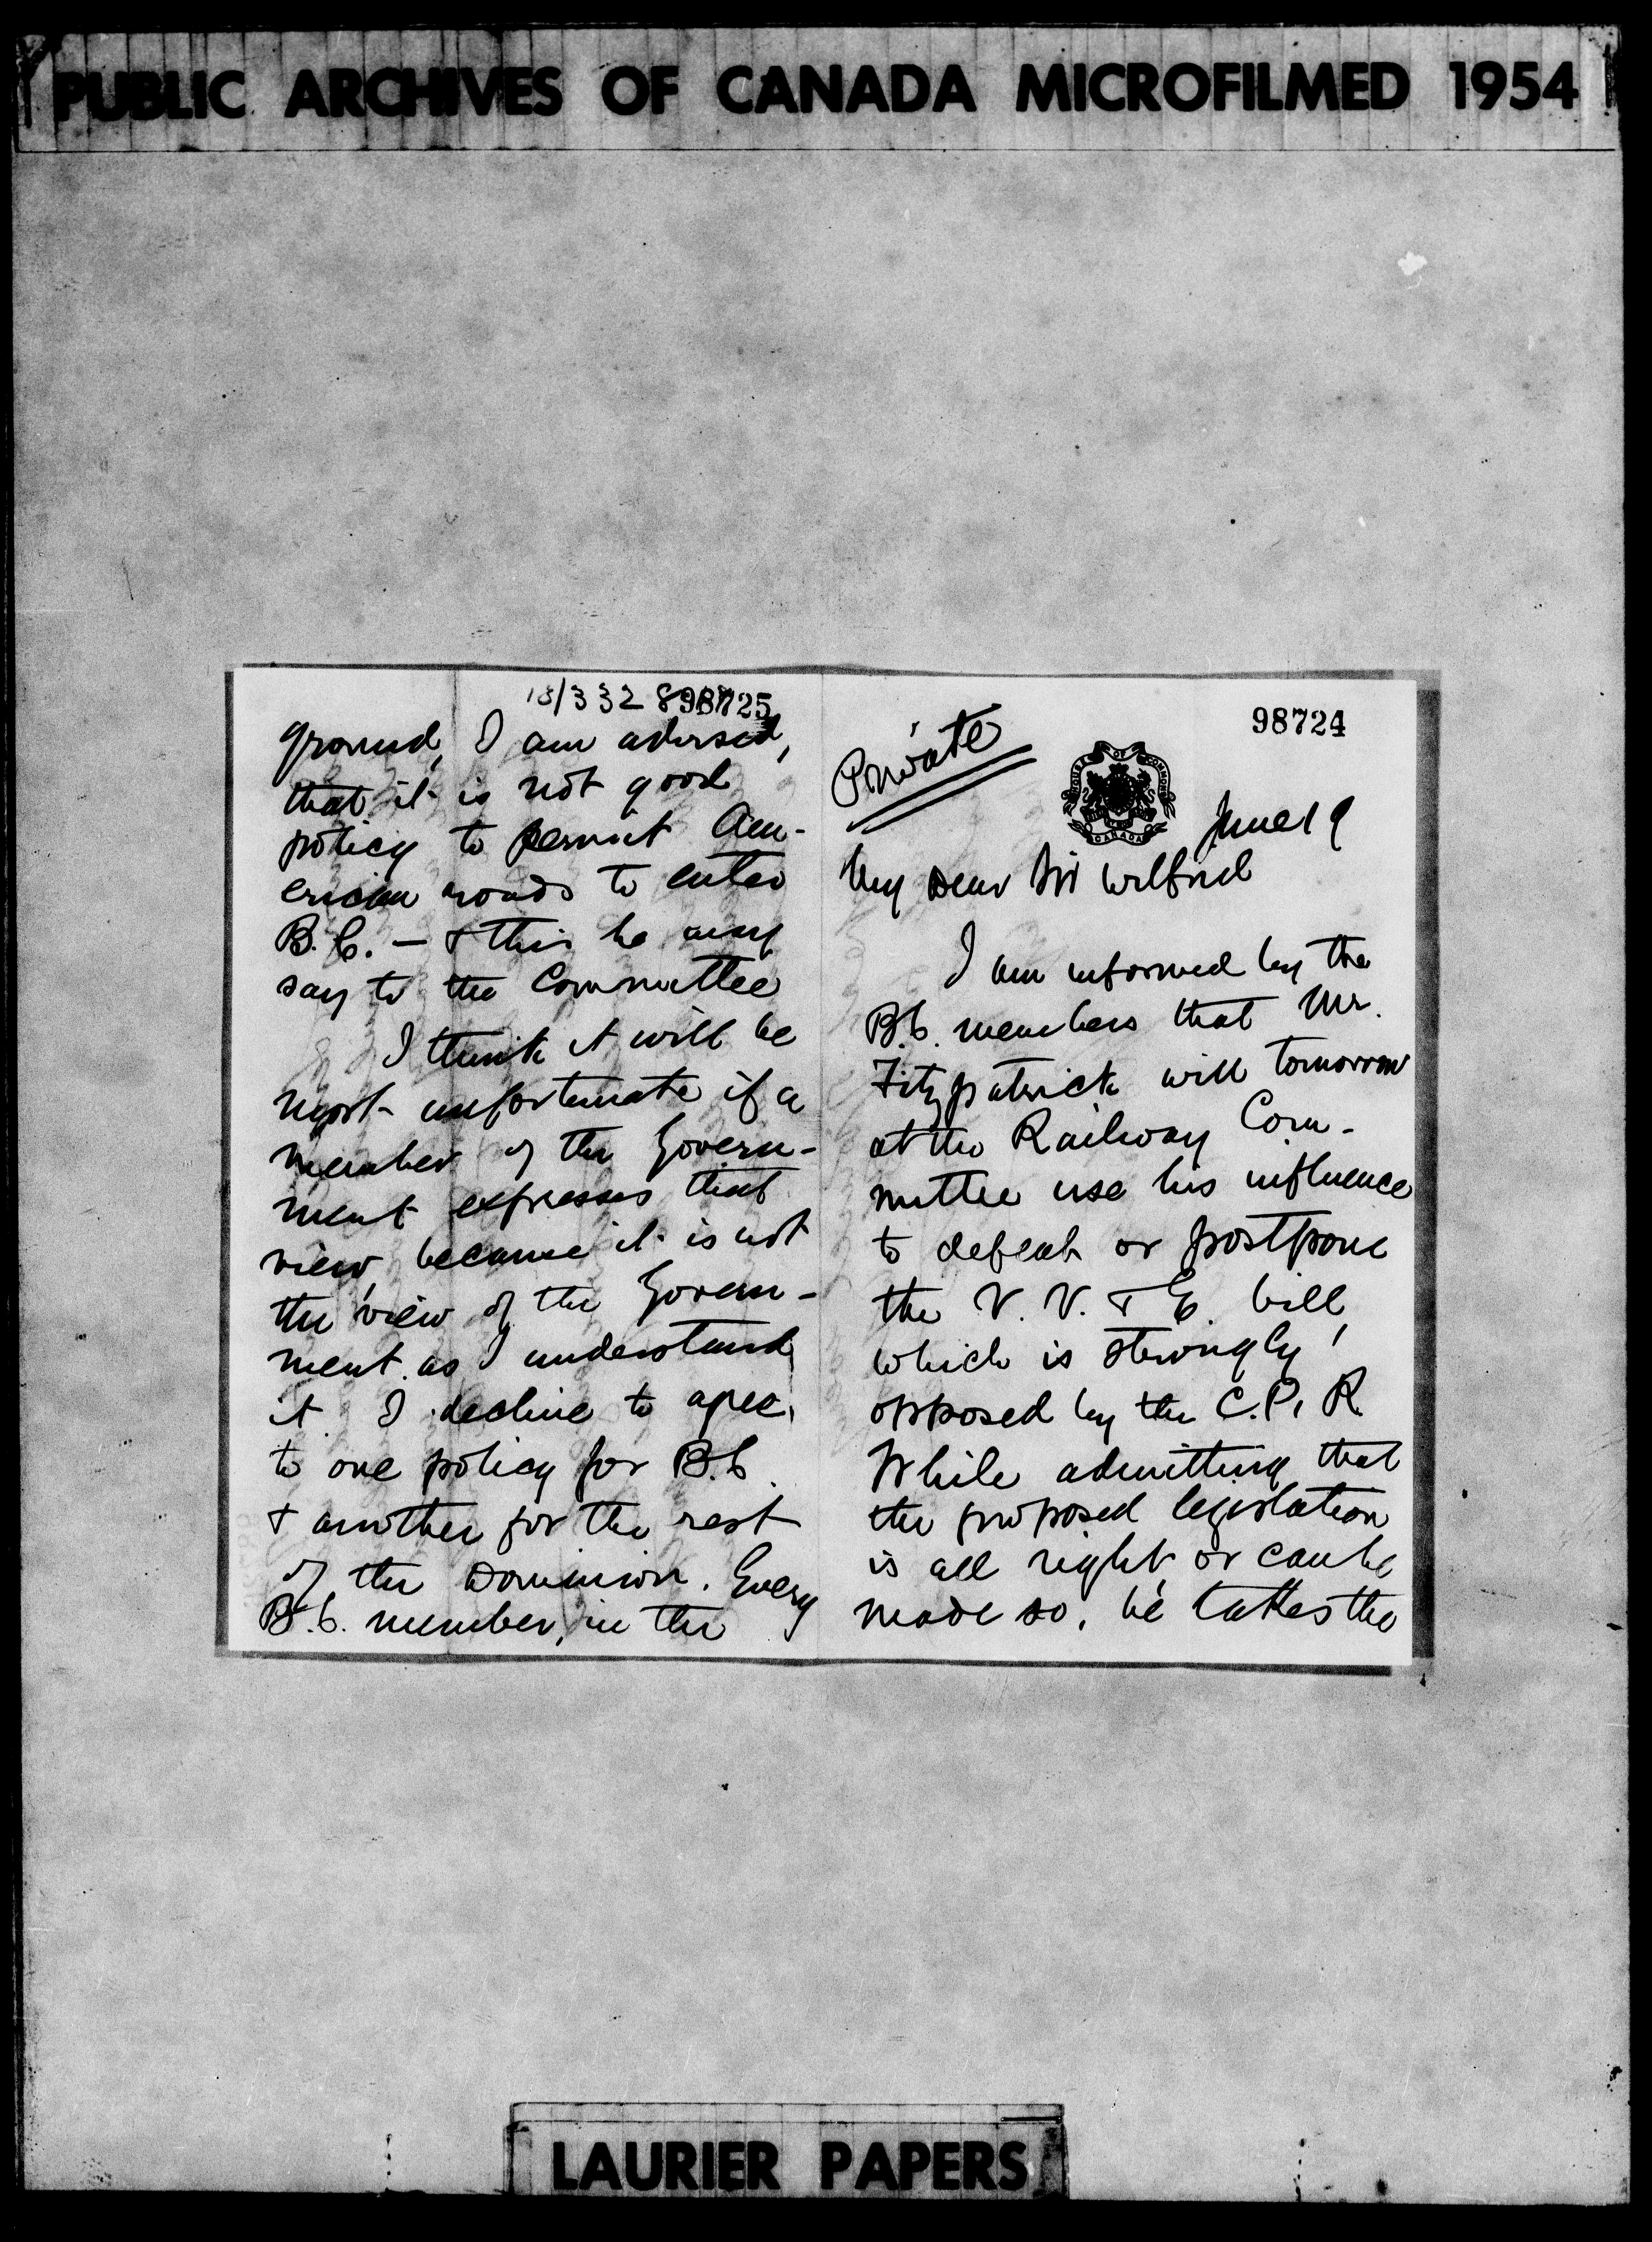 PUBLIC ARCHIVES OF CANADA MICROFILMED 1954
98724
Private
HOUSE OF COMMONS
CANADA
June 19
My Dear Sir Wilfrid
I am informed by the
B.C. members that Mr.
Fitzpatrick will tomorrow
at the Railway Com-
mittee use his influence
to defeat or postpone
the V. V. & E. bill,
which is strongly
opposed by the C.P.R.
While admitting that
the proposed legislation
is all right or can be
made so, he takes the
18/332 898725
ground, I am advised,
that it is not good
policy to permit Am-
erican roads to enter
B.C. — & this he may
say to the Committee
I think it will be
most unfortunate if a
member of the Govern-
ment expresses that
view, because it is not
the view of the Govern-
ment as I understand
it. I decline to agree
to one policy for B.C.
& another for the rest
of the Dominion. Every
B.C. member, in the
LAURIER PAPERS